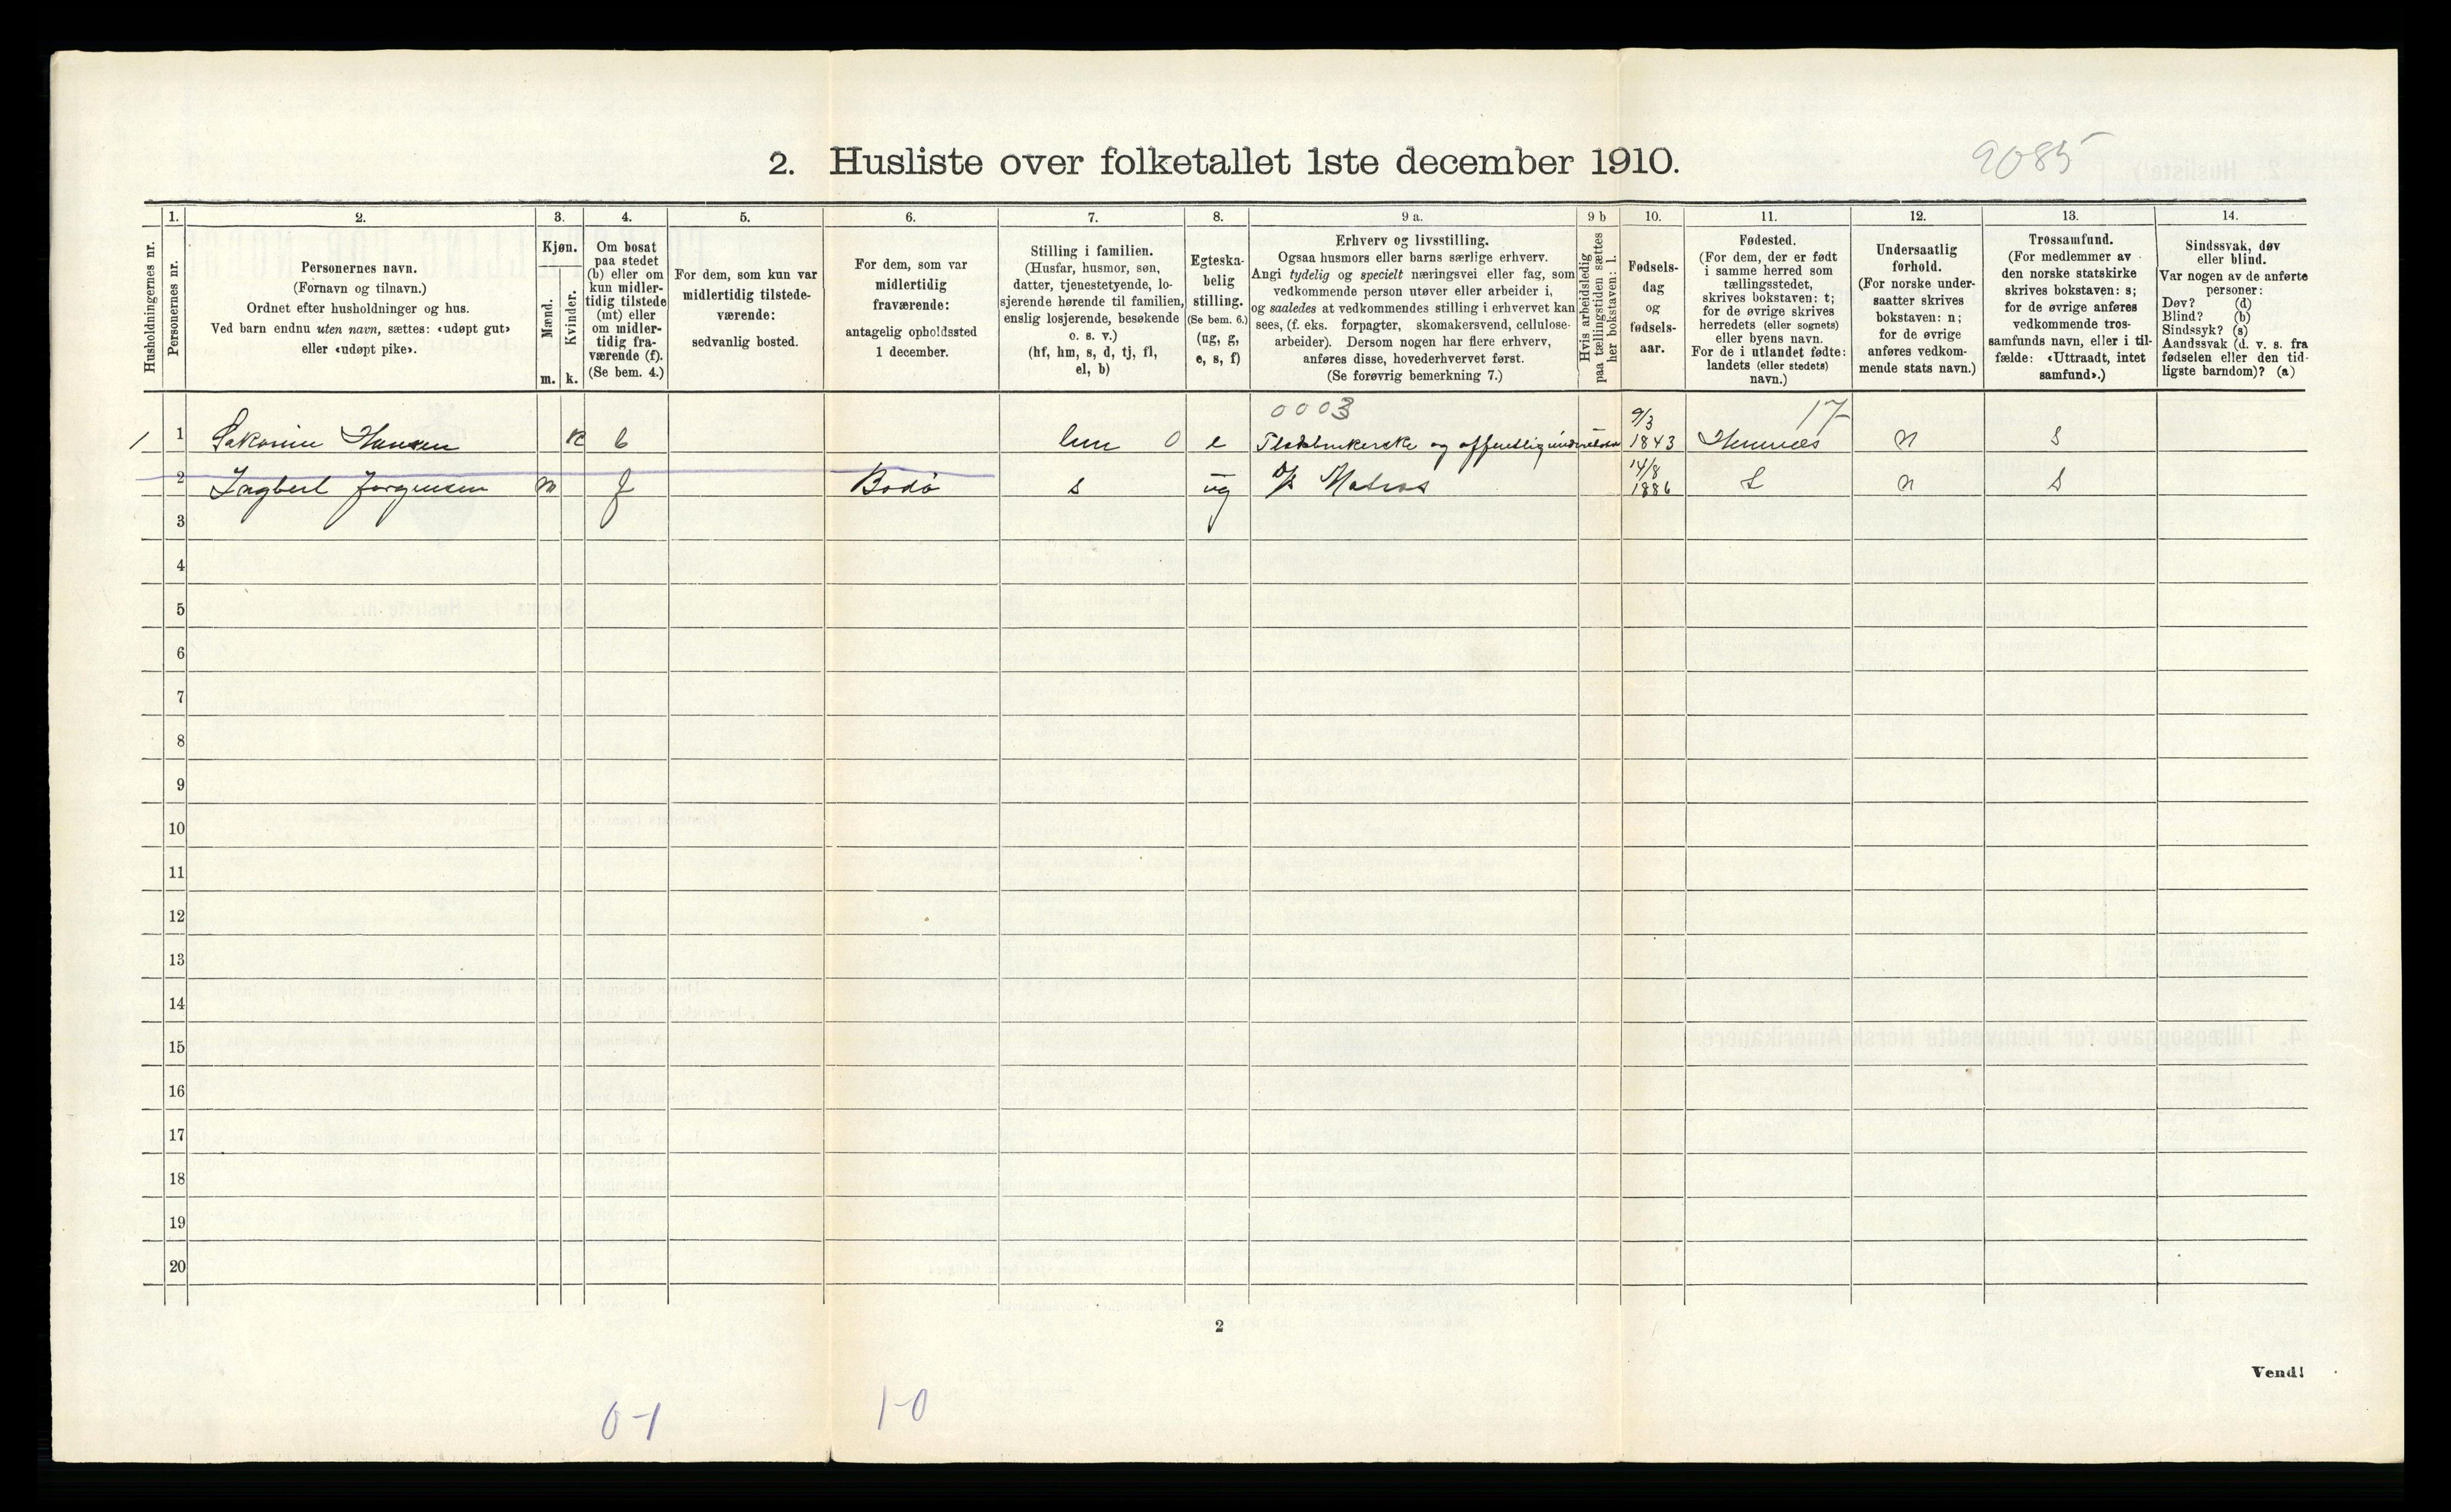 2. Husliste over folketallet 1ste december 1910.
9085
Husholdningernes nr.
1.
Personernes nr.
2.
Personernes navn.
(Fornavn og tilnavn.)
Ordnet efter husholdninger og hus.
Ved barn endnu uten navn, sættes: «udøpt gut»
eller «udøpt pike».
3.
Kjøn.
Mænd.
Kvinder.
m.
k.
4.
Om bosat
paa stedet
(b) eller om
kun midler-
tidig tilstede
(mt) eller
om midler-
tidig fra-
værende (f).
(Se bem. 4.)
5.
For dem, som kun var
midlertidig tilstede-
værende:
sedvanlig bosted.
6.
For dem, som var
midlertidig
fraværende:
antagelig opholdssted
1 december.
7.
Stilling i familien.
(Husfar, husmor, søn,
datter, tjenestetyende, lo-
sjerende hørende til familien,
enslig losjerende, besøkende
o. s. v.)
(hf, hm, s, d, tj, fl,
el, b)
8.
Egteska-
belig
stilling.
(Se bem. 6.)
(ug, g,
e, s, f)
9 a.
Erhverv og livsstilling.
Ogsaa husmors eller barns særlige erhverv.
Angi tydelig og specielt næringsvei eller fag, som
vedkommende person utøver eller arbeider i,
og saaledes at vedkommendes stilling i erhvervet kan
sees, (f. eks. forpagter, skomakersvend, cellulose-
arbeider). Dersom nogen har flere erhverv,
anføres disse, hovederhvervet først.
(Se forøvrig bemerkning 7.)
9 b
Hvis arbeidsledig
paa tællingstiden sættes
her bokstaven: l.
10.
Fødsels-
dag
og
fødsels-
aar.
11.
Fødested.
(For dem, der er født
i samme herred som
tællingsstedet,
skrives bokstaven: t;
for de øvrige skrives
herredets (eller sognets)
eller byens navn.
For de i utlandet fødte:
landets (eller stedets)
navn.)
12.
Undersaatlig
forhold.
(For norske under-
saatter skrives
bokstaven: n;
for de øvrige
anføres vedkom-
mende stats navn.)
13.
Trossamfund.
(For medlemmer av
den norske statskirke
skrives bokstaven: s;
for de øvrige anføres
vedkommende tros-
samfunds navn, eller i til-
fælde: «Uttraadt, intet
samfund».)
14.
Sindssvak, døv
eller blind.
Var nogen av de anførte
personer:
Døv? (d)
Blind? (b)
Sindssyk? (s)
Aandssvak (d. v. s. fra
fødselen eller den tid-
ligste barndom)? (a)
0003
9/3
17
1 1 Hansen k b 0 e og offentlig 1843 n s
14/8
2 Ingbert Jørgensen m f Bodø s ug Matros 1886 n s
3
4
5
6
7
8
9
10
11
12
13
14
15
16
17
18
19
20
2
Vend!
0-1
1-0